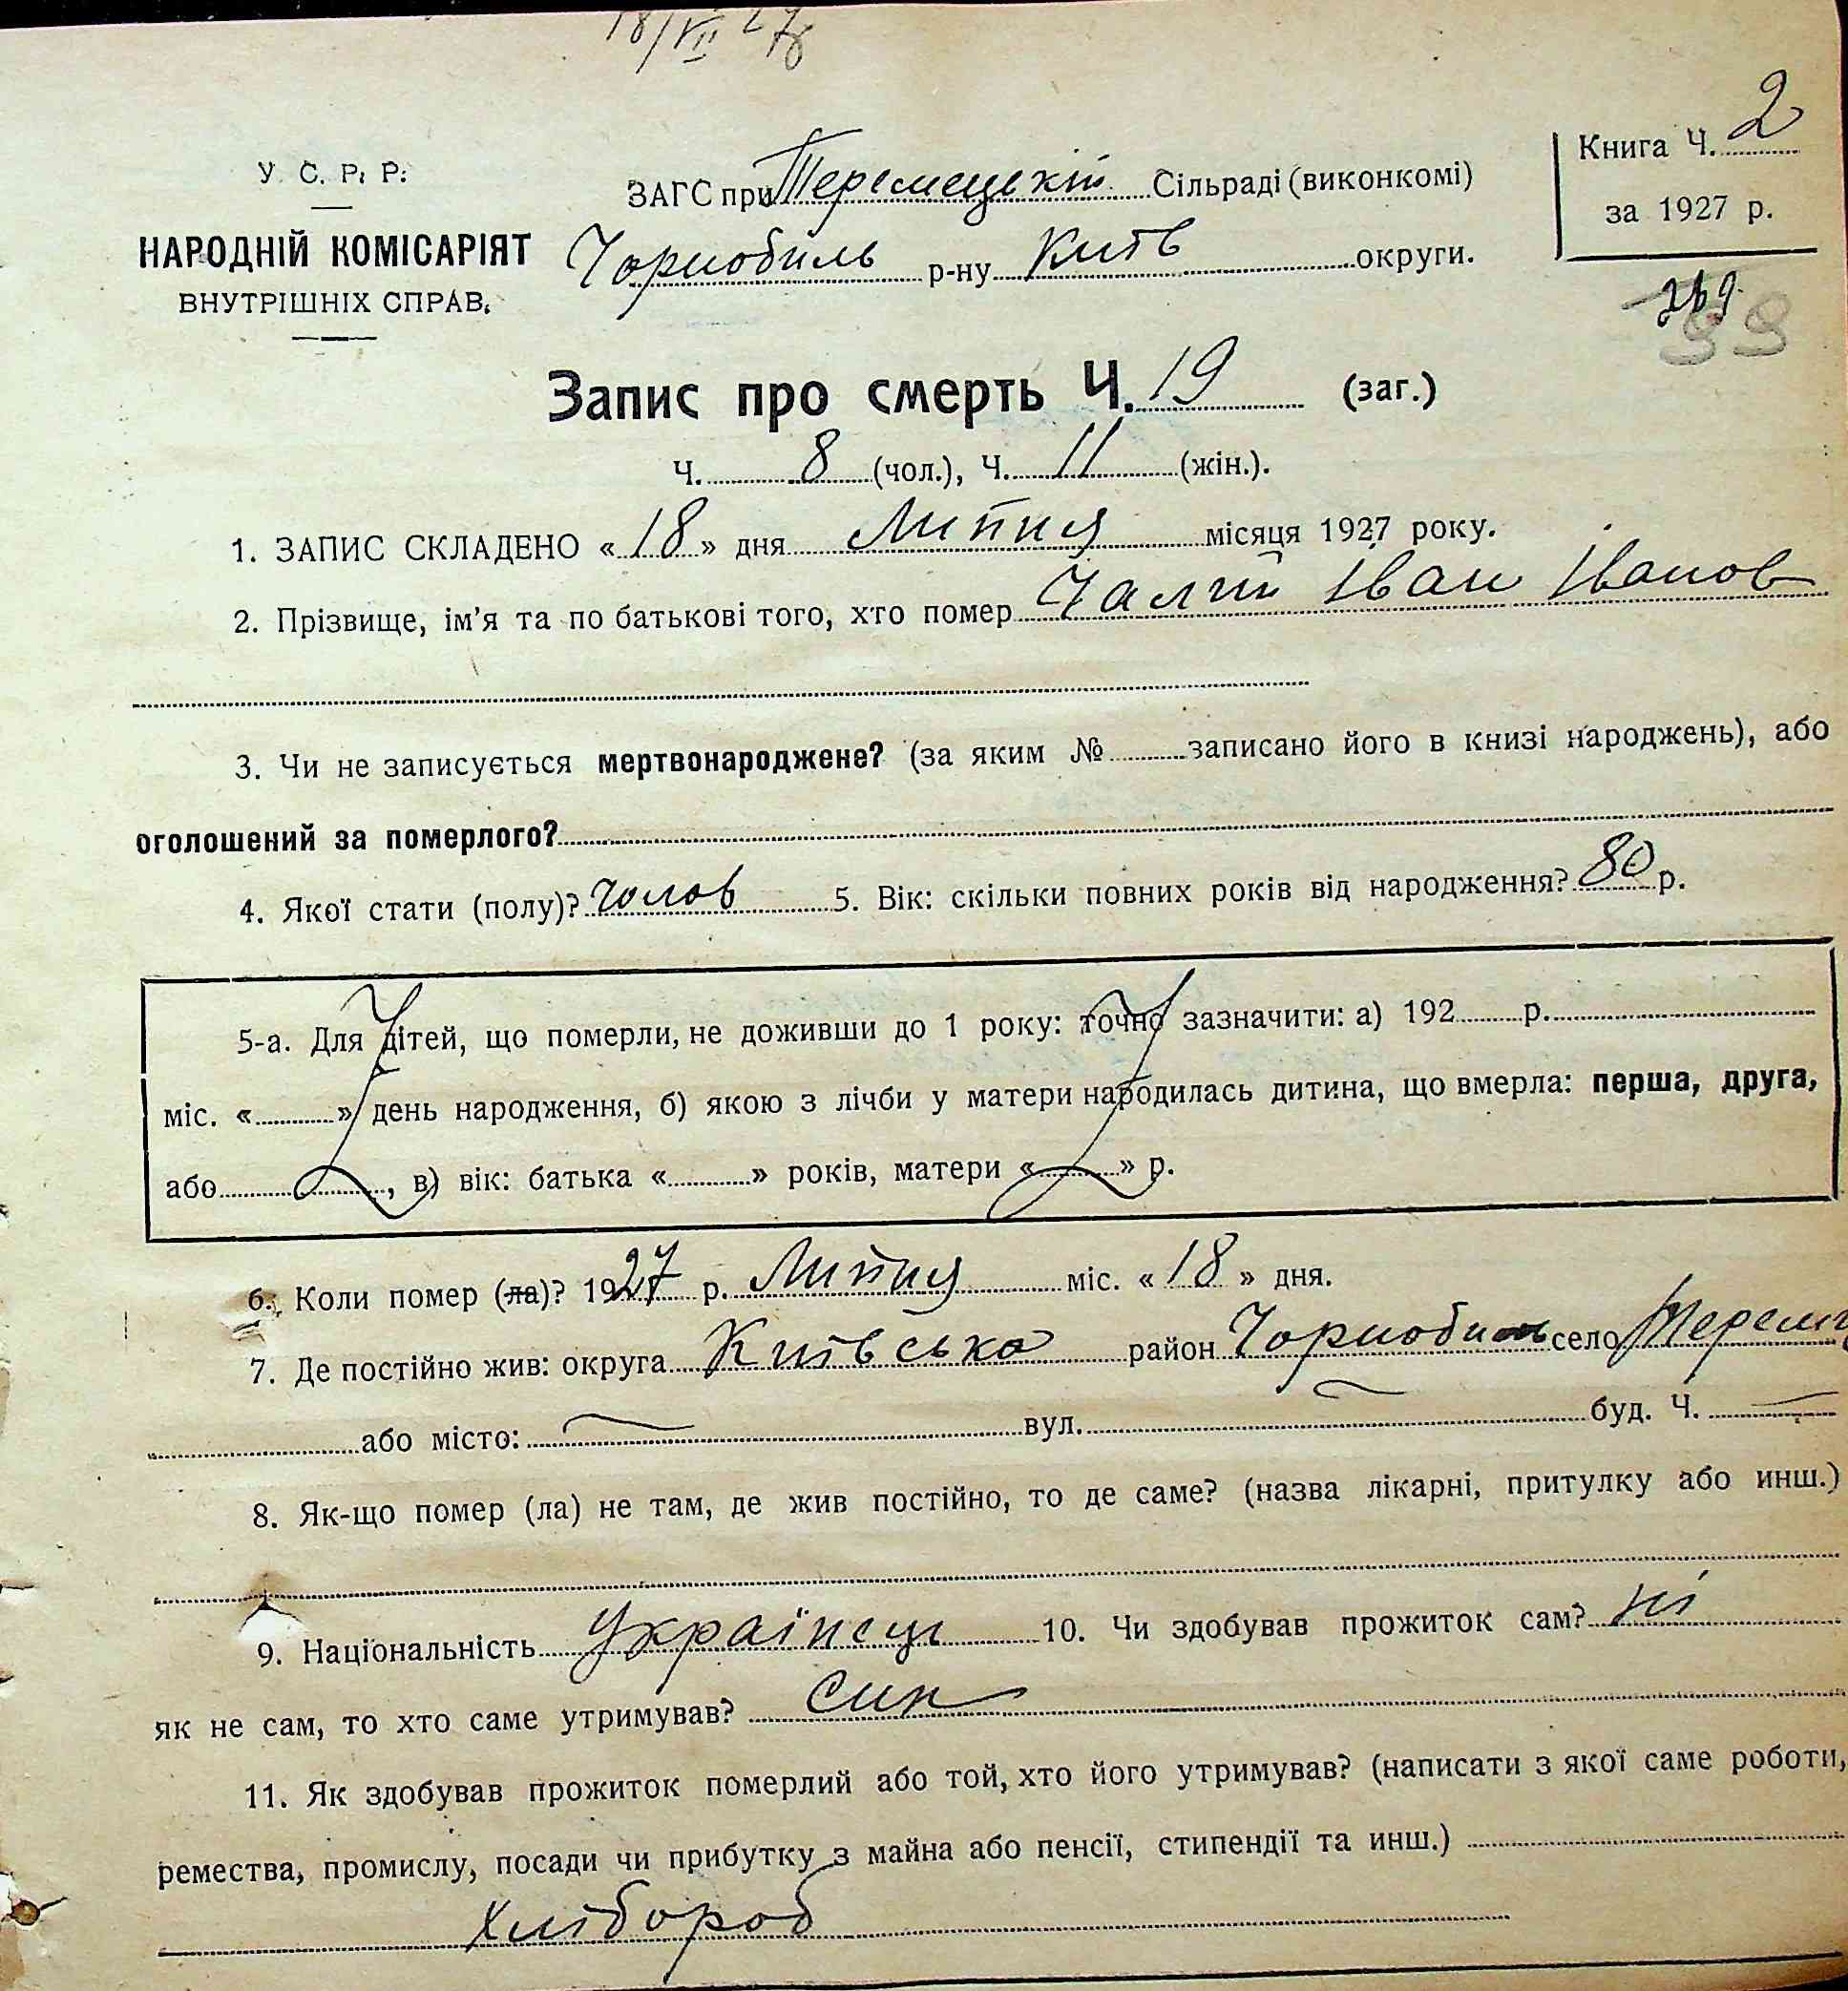 18/VII 27
У. С. Р. Р.
НАРОДНІЙ КОМІСАРІЯТ
ВНУТРІШНІХ СПРАВ.
ЗАГС при Теремецькій Сільраді (виконкомі)
Чорнобиль р-ну Київ округи.
Книга Ч. 2
за 1927 р.
99
Запис про смерть Ч. 19 (заг.)
Ч. 8 (чол.), Ч. 11 (жін.).
1. ЗАПИС СКЛАДЕНО « 18 » дня Липня місяця 1927 року.
2. Прізвище, ім'я та по батькові того, хто помер Чалий Іван Іванов
3. Чи не записується мертвонароджене? (за яким № записано його в книзі народжень), або
оголошений за померлого?
4. Якої стати (полу)? чолов 5. Вік: скільки повних років від народження? 80 р.
5-а. Для дітей, що померли, не доживши до 1 року: точно зазначити: а) 192 р.
міс. « » день народження, б) якою з лічби у матери народилась дитина, що вмерла: перша, друга,
або , в) вік: батька « » років, матери « » р.
6. Коли помер (ла)? 1927 р. Липня міс. « 18 » дня.
7. Де постійно жив: округа Київська район Чорнобиль село Теремц
або місто: вул. буд. Ч.
8. Як-що помер (ла) не там, де жив постійно, то де саме? (назва лікарні, притулку або инш.)
9. Національність Українець 10. Чи здобував прожиток сам? ні
як не сам, то хто саме утримував? син
11. Як здобував прожиток померлий або той, хто його утримував? (написати з якої саме роботи,
ремества, промислу, посади чи прибутку з майна або пенсії, стипендії та инш.)
хлібороб